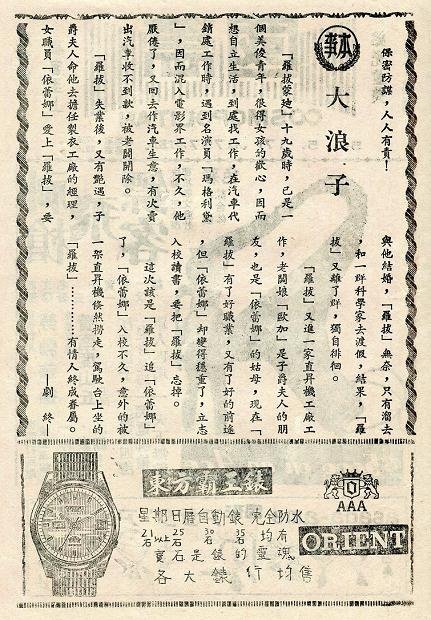 保密防諜，人人有責！
本事
大浪子
「羅拔蒙廸」十九歲時，已是一
個美俊青年，很得女孩的歡心，因而
想自立生活，到處找工作，在汽車代
銷處工作時，遇到名演員「瑪格利黛
」，因而混入電影界工作，不久，他
厭倦了，又回去作汽車生意，有次賣
出汽車收不到款，被老闆開除。
「羅拔」失業後，又有艷遇，子
爵夫人命他去擔任製衣工廠的經理，
女職員「依蕾娜」愛上「羅拔」，要
與他結婚，「羅拔」無奈，只有溜去
，和一群科學家去渡假，結果，「羅
拔」又離了群，獨自徘徊。
「羅拔」又進一家直昇機工廠工
作，老闆娘「歐加」是子爵夫人的朋
友，也是「依蕾娜」的姑母，現在「
羅拔」有了好職業，又有了好的前途
，但「依蕾娜」却變得穩重了，立志
入校讀書，要把「羅拔」忘掉。
這次該是「羅拔」追「依蕾娜」
了，「依蕾娜」入校不久，意外的被
一架直昇機倐然撈走，駕駛台上坐的
「羅拔」………有情人終成眷屬。
——劇終——
東方霸王錶
星期日曆自動錶 完全防水
21石以上 25石 30石 35石 均有
寶石是錶的靈魂
各大錶行均售
AAA
ORIENT